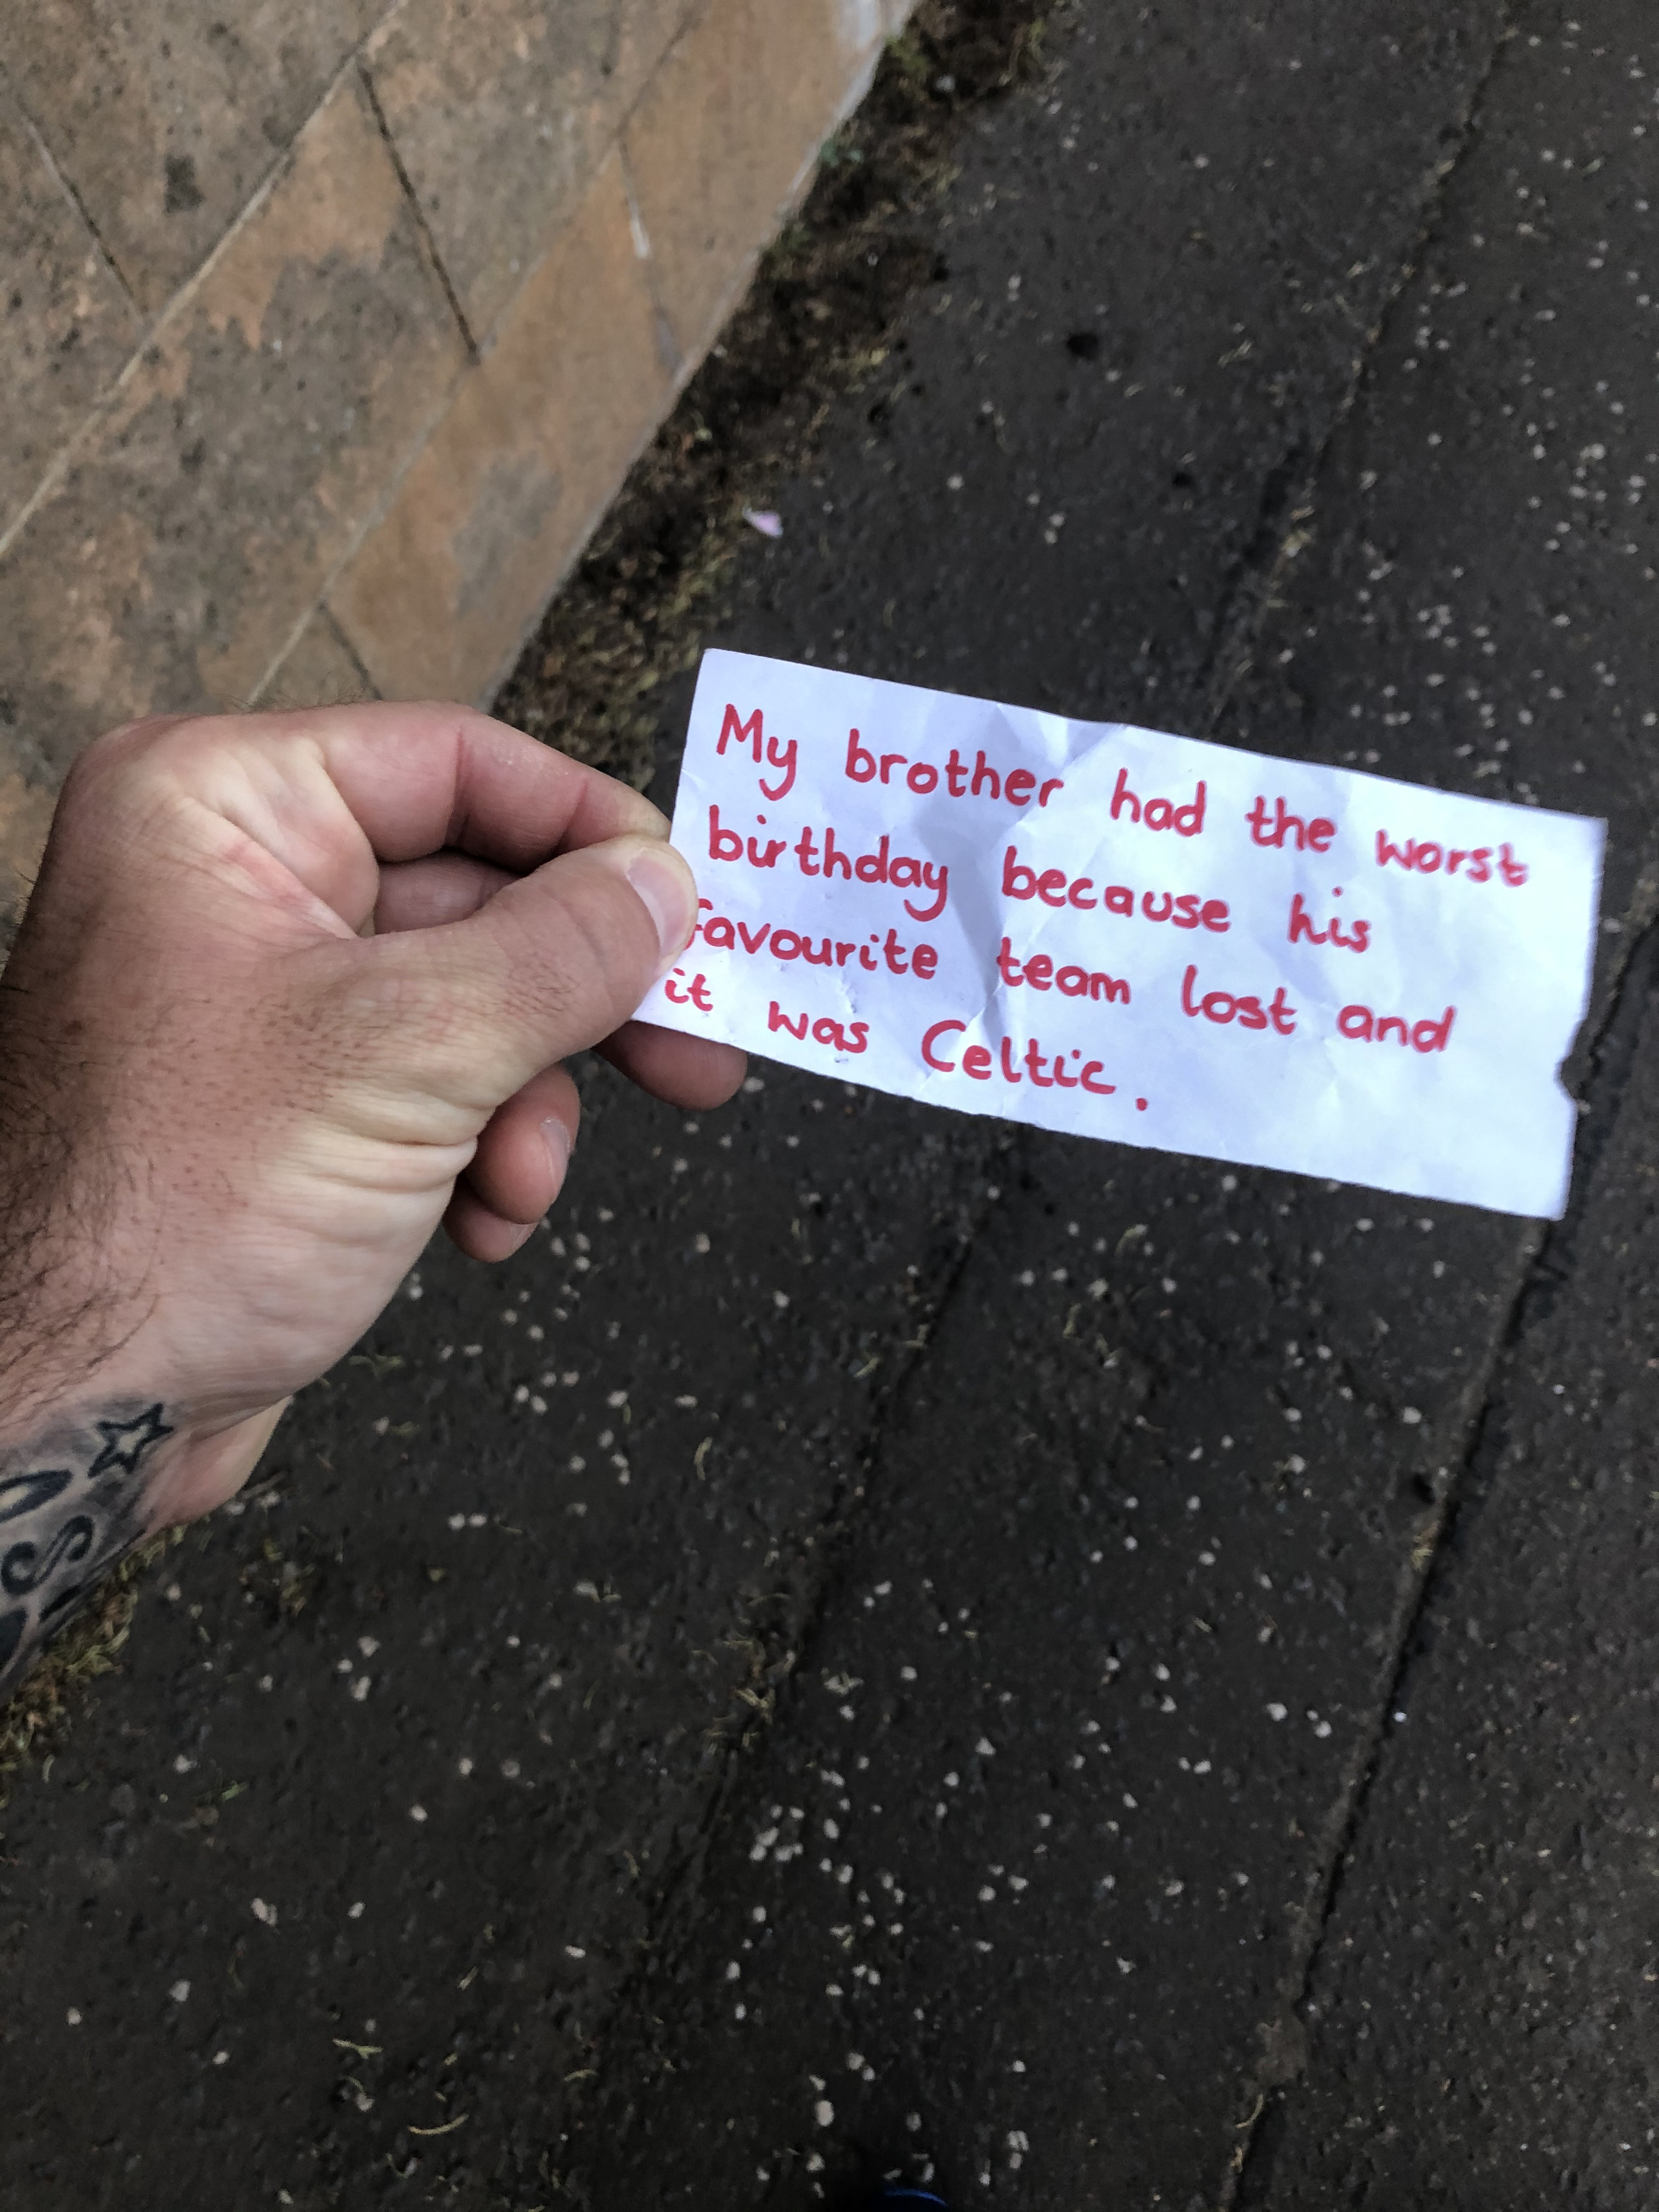 My brother had the worst
birthday because his
favourite team lost and
it was Celtic.